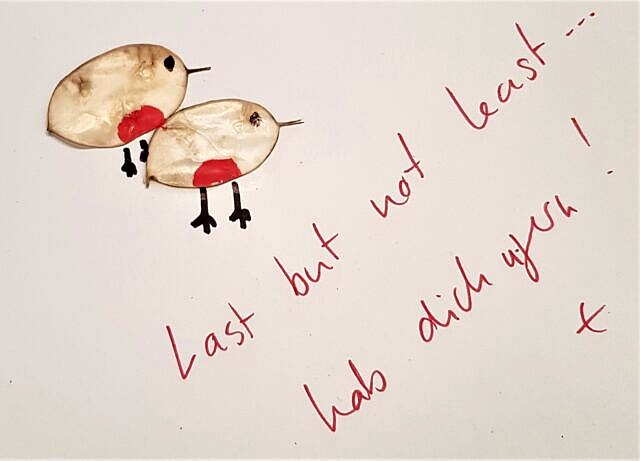 Last but not least...
hab dich !